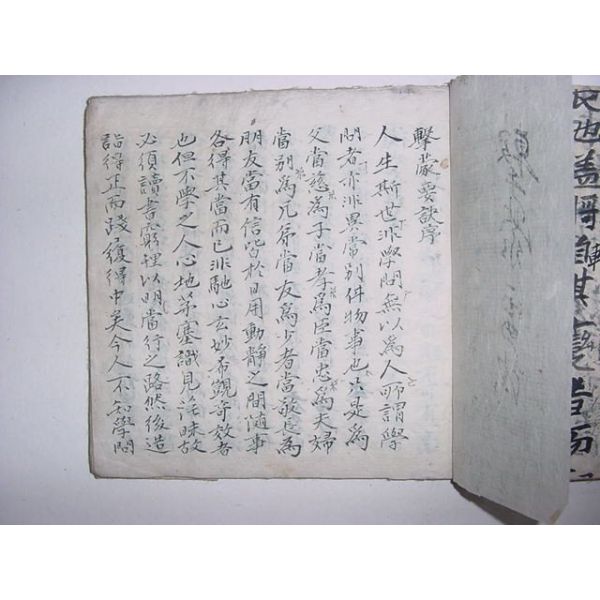 擊蒙要訣序
人生斯世非學問無以為人所謂學
問者亦非異常別件物事也只是為
父當慈為子當孝為臣當忠為夫婦
當別為兄弟當友為少者當敬長為
朋友當有信皆於日用動靜之間隨事
各得其當而已非馳心玄妙希覬奇效者
也但不學之人心地茅塞識見茫昧故
必須讀書窮理以明當行之路然後造
詣得正而踐履得中矣今人不知學問